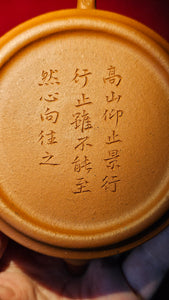 高山仰止景行
行止雖不能至
然心向往之